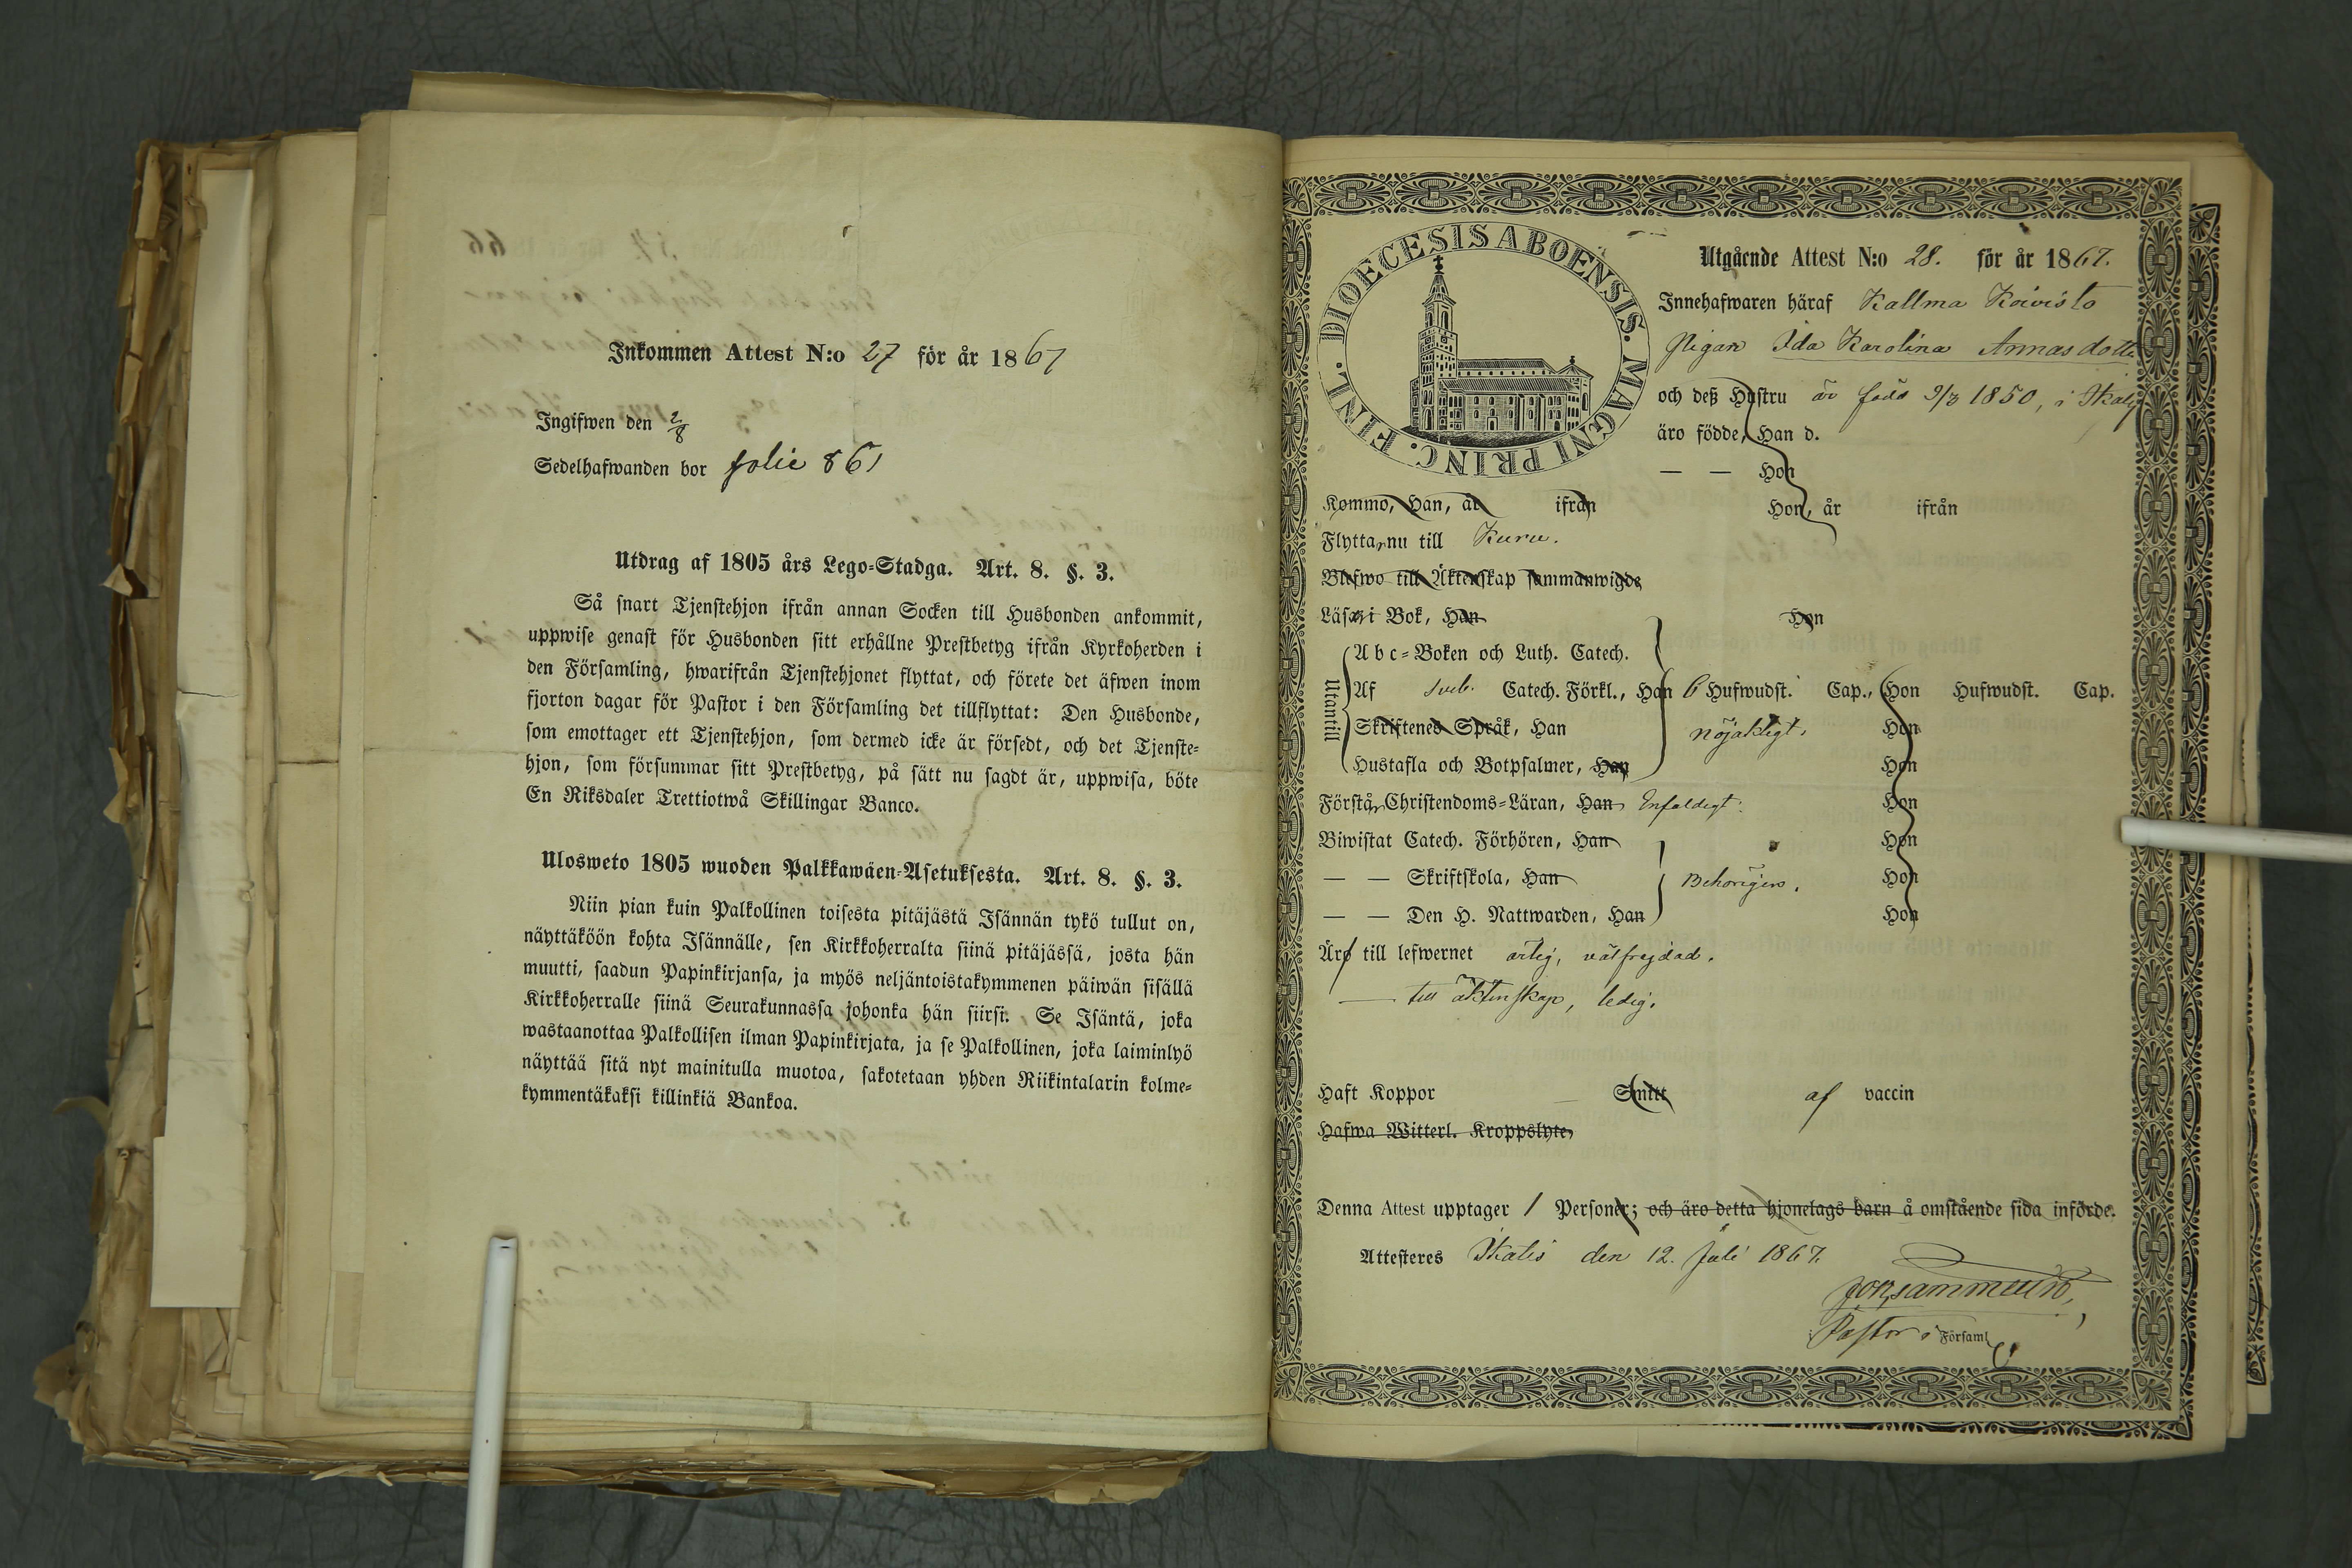 Inkommen Attest N:o 27 för år 1867
Ingifwen den 2/8
Sedelhafwanden bor folie 861
Utdrag af 1805 års Lego-Stadga. Art. 8. §. 3.
Så snart Tjenstehjon ifrån annan Socken till Husbonden ankommit,
uppwise genast för Husbonden sitt erhållne Prestbetyg ifrån Kyrkoherden i
den Församling, hwarifrån Tjenstehjonet flyttat, och förete det äfwen inom
fjorton dagar för Pastor i den Församling det tillflyttat: Den Husbonde,
som emottager ett Tjenstehjon, som dermed icke är försedt, och det Tjenste-
hjon, som försummar sitt Prestbetyg, på sätt nu sagdt är, uppwisa, böte
En Riksdaler Trettiotwå Skillingar Banco.
Ulosweto 1805 wuoden Palkkawäen-Asetuksesta. Art. 8. §. 3.
Niin pian kuin Palkollinen toisesta pitäjästä Isännän tykö tullut on,
näyttäköön kohta Isännälle, sen Kirkkoherralta siinä pitäjässä, josta hän
muutti, saadun Papinkirjansa, ja myös neljäntoistakymmenen päiwän sisällä
Kirkkoherralle siinä Seurakunnassa johonka hän siirsi. Se Isäntä, joka
wastaanottaa Palkollisen ilman Papinkirjata, ja se Palkollinen, joka laiminlyö
näyttää sitä nyt mainitulla muotoa, sakotetaan yhden Riikintalarin kolme-
kymmentäkaksi killinkiä Bankoa.
DIOECESIS ABOENSIS. MAGNI PRINC. FINL.
Utgående Attest N:o 28. för år 1867.
Innehafwaren häraf Kallma Koivisto
Pigan Ida Karolina Annasdotte
och deß Hustru är född 9/3 1850, i
äro födde, Han d.
— — Hon
Kommo, Han, år ifrån Hon, år ifrån
Flytta nu till Kuru.
Blefwo till Äktenskap sammanwigde
Läsa i Bok, Han Hon
Utantill
Abc-Boken och Luth. Catech.
Af Sveb. Catech. Förkl., Han 6 Hufwudst. Cap., Hon Hufwudst. Cap.
Skriftenes Språk, Han nöjaktigt. Hon
Hustafla och Botpsalmer, Han Hon
Förstår Christendoms-Läran, Han Enfaldigt. Hon
Biwistat Catech. Förhören, Han Hon
— — Skriftskola, Han Behörigen. Hon
— — Den H. Nattwarden, Han Hon
Äro till lefwernet ärlig, välfrejdad.
— till äktenskap, ledig.
Haft Koppor Smitt af vaccin
Hafwa Witterl. Kroppslyte,
Denna Attest upptager 1 Personer; och äro detta hjonelags barn å omstående sida införde.
Attesteres Ikalis den 12. Juli 1867.
Pastor i Församl